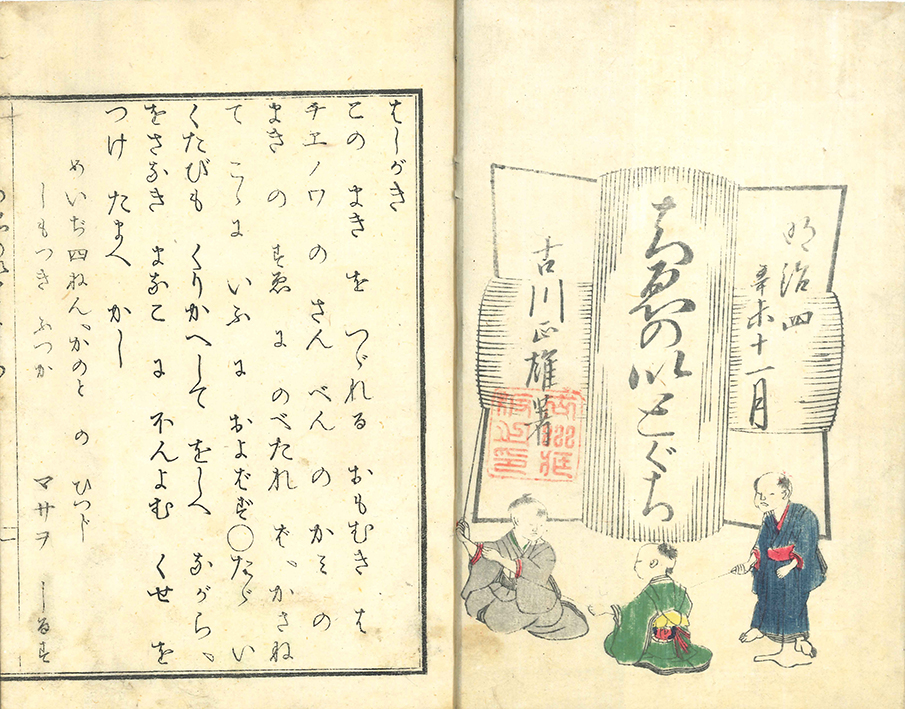 明治四
辛未十一月
ちゑの以とぐち
古川正雄著
はしがき
この まき を つゞれる おもむき は
チヱノワ の さん べん の かミ の
まき の すゑ に のべたれ ば、かさね
て こゝに いふ に およばず〇たゞ い
くたびも くりかへして をしへ ながら、
をさなき まなこ に ふんよむ くせ を
つけ たまへ かし
めいぢ四ねん、かのと の ひつじ
しもつき ふつか マサヲ しるす